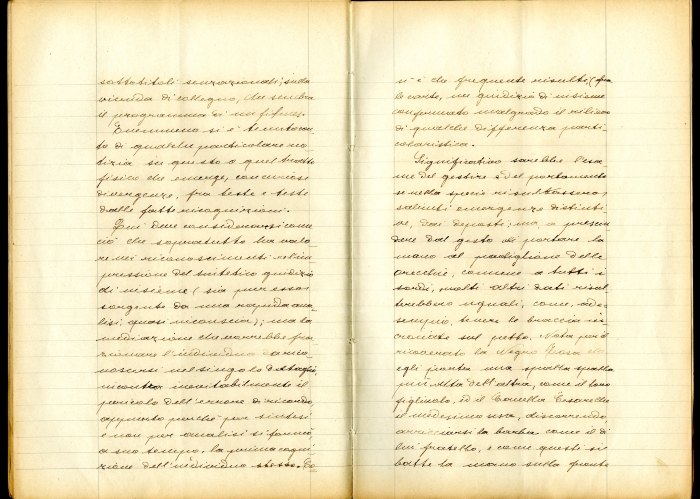 sottotitoli sensazionali, sulla
vicenda di Collegno, che sembra
il programma di un films.
E nemmeno si è tenuto con-
to di qualche particolare no-
tizia su questo o quel tratto
fisico che emerge, con curiose
divergenze, fra teste e teste
dalle fatte ricognizioni.
Qui deve considerarsi come
ciò che sopratutto ha valo-
re nei riconoscimenti è l'im-
pressione del sintetico giudizio
di insieme (sia pur esso
sorgente da una rapida ana-
lisi, quasi inconscia); ma la
mediazione che vorrebbe fra-
zionare l'individuo
noscersi nel singolo dettaglio,
incontra inevitabilmente il
pericolo dell'errore di ricordo,
appunto perchè per sintesi
e non per analisi si formò
a suo tempo, la prima cogni-
zione dell'individuo stesso. Ed
si è che frequente risulti, (fra
le carte, un giudizio di insieme
confermato malgrado il rilievo
di qualche differenza parti-
colaristica.
Significativo sarebbe l'esa-
me del gestire e del portamento
se nella specie risultassero
salienti emergenze distinti-
ve, dai deposti; ma, a prescin-
dere dal gesto di portare la
mano al padiglione delle
orecchie, comune a tutti i
sordi, molti altri dati risul-
terebbero uguali, come, ad
esempio, tenere le braccia in-
crociate sul petto. Nota però
ricoverato la Negro Rosa che
egli porta una spalla
più alta dell'altra, come il
ed il Cornella Cesarello
il medesimo usa, discorrendo,
arricciarsi la barba come il di
lui fratello, e come questi si
batte la mano sulla fronte